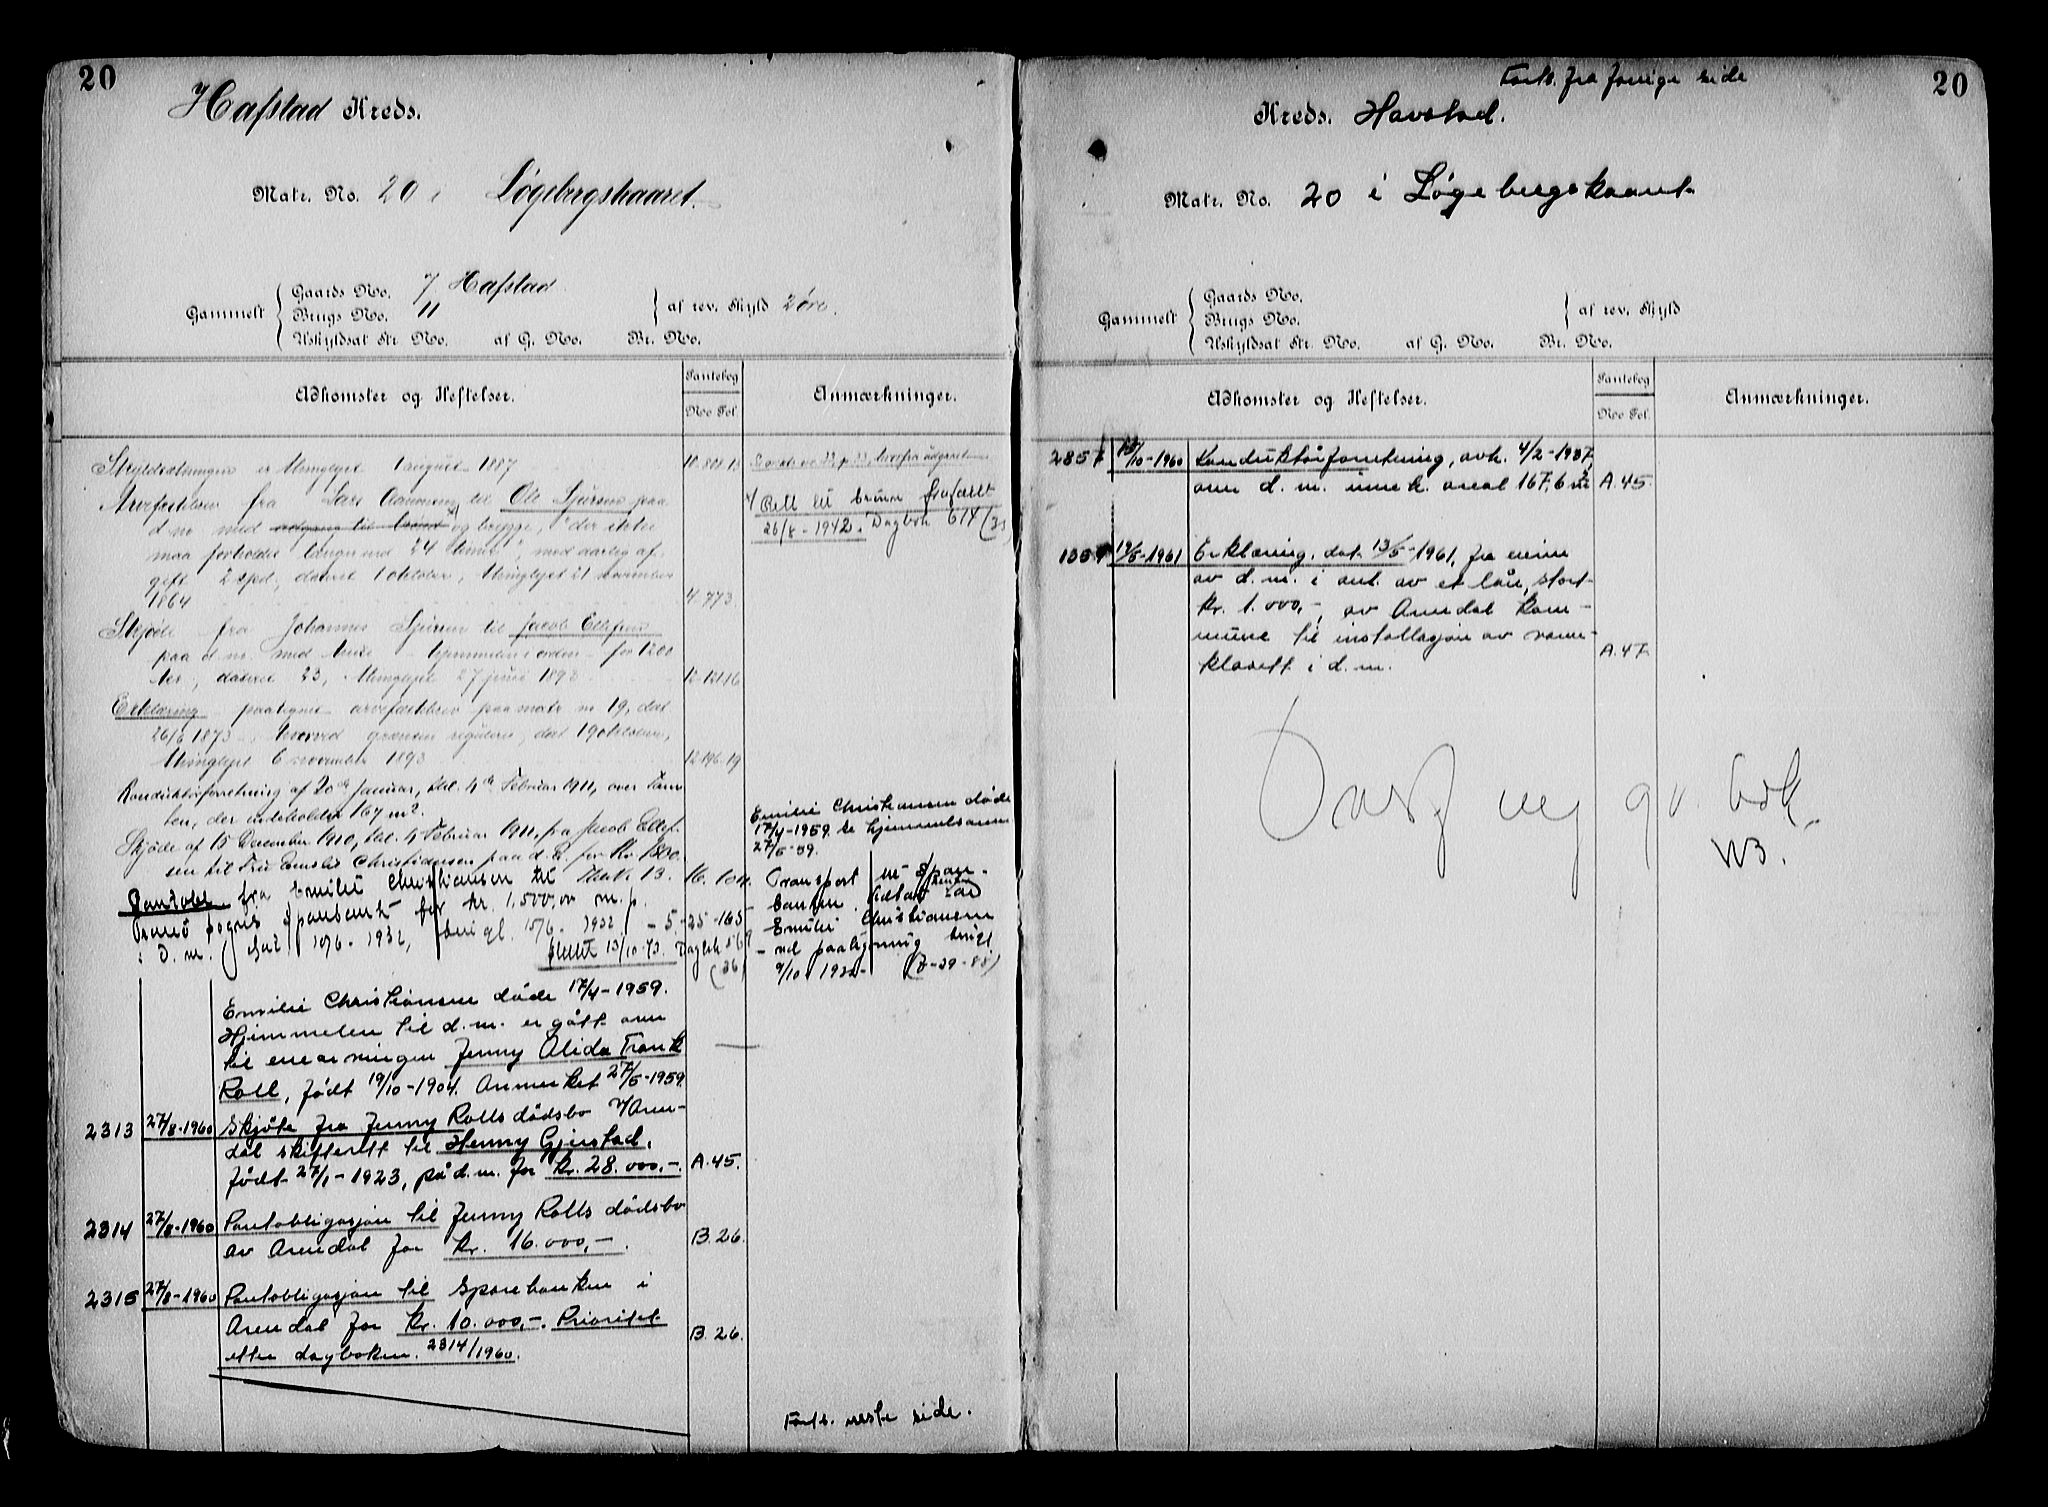 20
Hafstad Kreds.
Matr. No. 20 i Løgebergskaaret.
Gaards No. 7 Hafstad
Gammelt Brugs No. 11 af rev. Skyld 2 øre.
Uskyldsat Str. No. af G. No. Br. No.
Adkomster og Heftelser.
Pantebog
No. Fol.
Anmærkninger.
Skyldsætningen er thinglyst 1 august 1887 10.808.13
Arvefæstebrev fra Lars til Ole Sjursen paa
d. no med adgang til brønd og brygge, "der ikke
maa forholdes længer end 24 timer", med aarlig af-
gift 2 spd, dateret 1 oktober, thinglyst 21 november
1864 4.773.
x/ Rett til brønn frafallt
26/8-1942. Dagbok 614
Skjøde fra Johannes Sjursen til Jacob Ellefsen
paa d. no. med huse - hjemmelen i orden - for 1200
kr., dateret 23, thinglyst 27 juni 1893 12.121.16
Erklæring paategnet arvefæstebrev paa matr no 19, dat
26/6 1873 - hvorved grænsen reguleres, dat 19 oktober,
thinglyst 6 november 1893 12.196.19
Konduktørforretning af 20de Januar, thl. 4de Februar 1911, over Tom-
ten, der indeholder 167 m².
Skjøde af 15 December 1910, thl. 4 Februar 1911, fra Jacob Ellef-
sen til Fru Emilie Christiansen paa d. E. for Kr. 1800.
16. 104.
Emilie Christiansen døde
17/4-1959. Se hjemmelsanm
27/5-59.
Pantobl. fra Emilie Christiansen til
Tromø sogns Sparebank for kr. 1,500,00 m. p.
i d. m. dat 10/6-1932, tingl. 15/6 1932 - 5.-25-165
slettet 13/10-43. Dagbok
Transport til Spare-
banken
Emilie Christiansen
- ved paategning tingl
Emilie Christiansen døde 17/4-1959.
Hjemmelen til d.m. er gått over
til enearvingen Jenny Alida Frank
Roll, født 19/10-1904. Anmerket 27/5-1959.
2313 27/8-1960 Skjøte fra Jenny Rolls dødsbo v/Aren-
dal skifterett til Henny Gjerstad,
født 27/1-1923, på d.m. for kr. 28.000,-. A.45.
2314 27/8-1960 Pantobligasjon til Jenny Rolls dødsbo
av Arendal for kr. 16.000,-. B.26.
2315 27/8-1960 Pantobligasjon til Sparebanken i
Arendal for kr. 10.000,-. Prioritet
etter dagboken. 2314/1960. B.26.
Forts. neste side.
Forts. fra forrige side
20
Kreds. Havstad.
Matr. No. 20 i Løgebergskaaret
Gaards No.
Gammelt Brugs No. af rev. Skyld
Uskyldsat Str. No. af G. No. Br. No.
Adkomster og Heftelser.
Pantebog
No. Fol.
Anmærkninger.
2857 13/10-1960 Konduktørforretning, avh. 4/2-1937,
over d.m. inneh. areal 167,6 m² A.45.
1357 19/5-1961 Erklæring, dat. 13/5-1961, fra eieren
av d.m. i anl. av et lån, stort
kr. 1.000,-, av Arendal kom-
mune til installasjon av vann-
klosett i d.m. A.47.